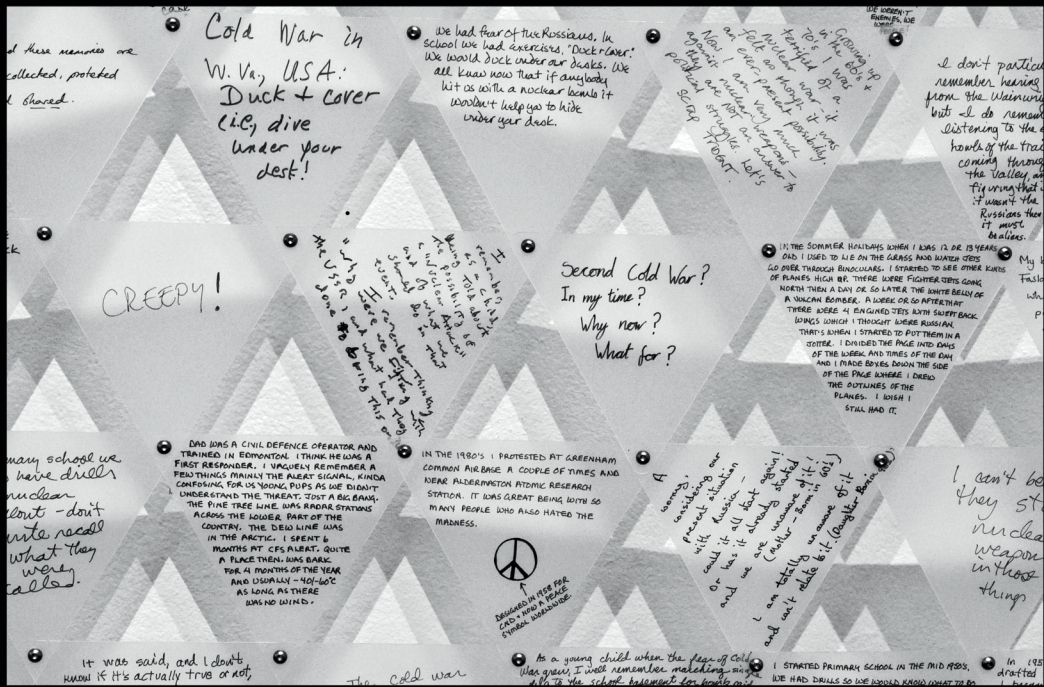 WE WEREN'T
ENEMIES, WE
d these memories are
collected, protected
d shared.
Cold War in
W. Va., USA:
Duck + cover
(i.e., dive
under your
desk!
We had fear of the Russians. In
school we had exercises, "Duck + Cover".
We would duck under our desks. We
all know now that if anybody
hit us with a nuclear bomb it
wouldn't help you to hide
under your desk.
Growing up
in the 60's +
70's I was
terrified of a
nuclear war. it
felt as though it was
an ever-present possibility.
Now I am very much
against nuclear weapons -
they are NOT an answer to
political struggles. Let's
SCRAP
TRIDENT.
I don't particu
remember hearing
from the Wainwri
but I do remem
listening to the e
howls of the trai
coming throug
the valley, an
figuring that i
it wasn't the
Russians then
it must
be aliens.
CREEPY!
I
remember,
as a child,
being told about
the possibility of
a "Nuclear Attack"
and what we
should do in that
event.
I remember thinking
"why were we fighting with
the USSR and what had they
done to bring this on
Second Cold War?
In my time?
Why now?
What for?
IN THE SUMMER HOLIDAYS WHEN I WAS 12 OR 13 YEARS
OLD I USED TO LIE ON THE GRASS AND WATCH JETS
GO OVER THROUGH BINOCULARS. I STARTED TO SEE OTHER KINDS
OF PLANES HIGH UP. THERE WERE FIGHTER JETS GOING
NORTH THEN A DAY OR SO LATER THE WHITE BELLY OF
A VULCAN BOMBER. A WEEK OR SO AFTER THAT
THERE WERE 4 ENGINED JETS WITH SWEPT BACK
WINGS WHICH I THOUGHT WERE RUSSIAN.
THAT'S WHEN I STARTED TO PUT THEM IN A
JOTTER. I DIVIDED THE PAGE INTO DAYS
OF THE WEEK AND TIMES OF THE DAY
AND I MADE BOXES DOWN THE SIDE
OF THE PAGE WHERE I DREW
THE OUTLINES OF THE
PLANES. I WISH I
STILL HAD IT.
My
Fasla
wh
mary school we
have drills
nuclear
llout - don't
quite recall
what they
were
called.
DAD WAS A CIVIL DEFENCE OPERATOR AND
TRAINED IN EDMONTON. I THINK HE WAS A
FIRST RESPONDER. I VAGUELY REMEMBER A
FEW THINGS MAINLY THE ALERT SIGNAL, KINDA
CONFUSING FOR US YOUNG PUPS AS WE DIDN'T
UNDERSTAND THE THREAT. JUST A BIG BANG.
THE PINE TREE LINE WAS RADAR STATIONS
ACROSS THE LOWER PART OF THE
COUNTRY. THE DEW LINE WAS
IN THE ARCTIC. I SPENT 6
MONTHS AT CFS ALERT. QUITE
A PLACE THEN. WAS DARK
FOR 4 MONTHS OF THE YEAR
AND USUALLY -40/-60°C
AS LONG AS THERE
WAS NO WIND.
IN THE 1980'S I PROTESTED AT GREENHAM
COMMON AIR BASE A COUPLE OF TIMES AND
NEAR ALDERMASTON ATOMIC RESEARCH
STATION. IT WAS GREAT BEING WITH SO
MANY PEOPLE WHO ALSO HATED THE
MADNESS.
DESIGNED IN 1958 FOR
CND + NOW A PEACE
SYMBOL WORLDWIDE.
A
worry,
considering our
present situation
with Russia -
could it all start again?
or has it already started
and we are unaware of it!
(Mother - Born in 60's)
I am totally unaware of it
and can't relate to it. (Daughter Born in
I can't be
they st
nuclear
weapon
in those
things
It was said, and I don't
know if it's actually true or not,
The Cold war
As a young child when the fear of Cold
War grew, I well remember marching single
file to the school basement for bomb
I STARTED PRIMARY SCHOOL IN THE MID 1950'S,
WE HAD DRILLS SO WE WOULD KNOW WHAT TO DO
In 195
drafted